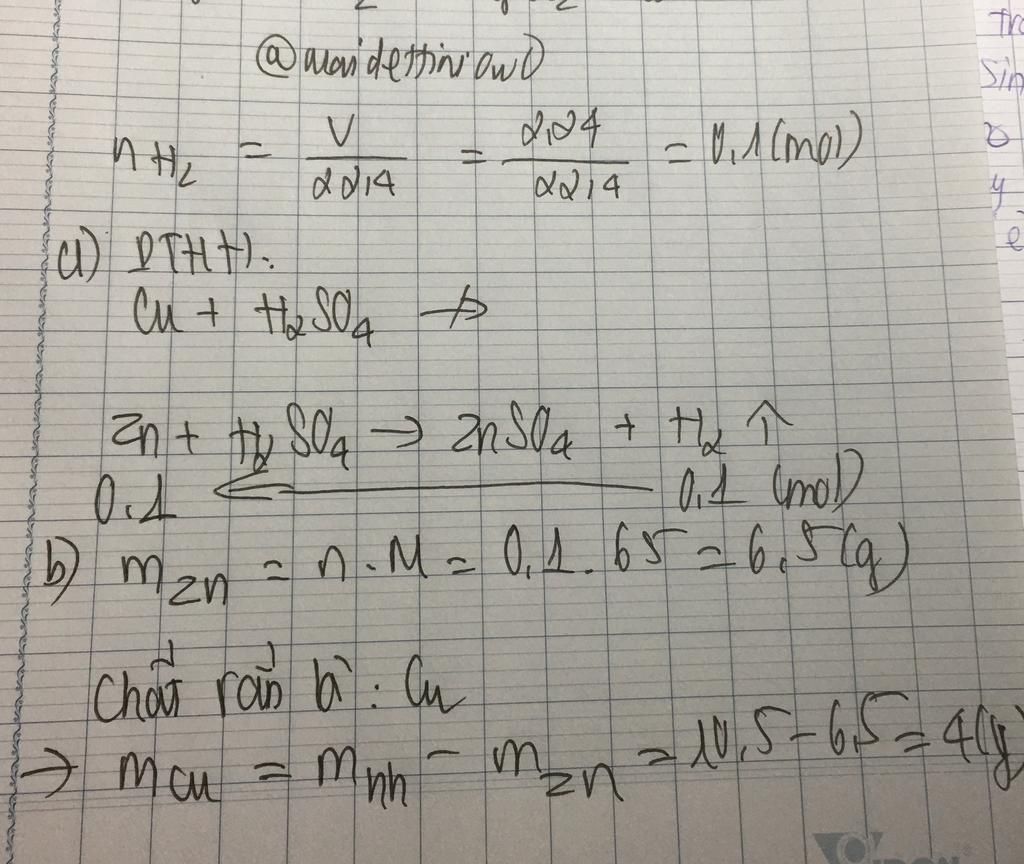 nH2 = V/22,4 = 2,24/22,4 = 0,1 (mol)
a) PTHH:
Cu + H2SO4 ↛
Zn + H2SO4 → ZnSO4 + H2 ↑
0.1 ← 0.1 (mol)
b) mZn = n . M = 0,1 . 65 = 6,5 (g)
Chất rắn B : Cu
→ mCu = mhh - mZn = 10,5 - 6,5 = 4 (g)